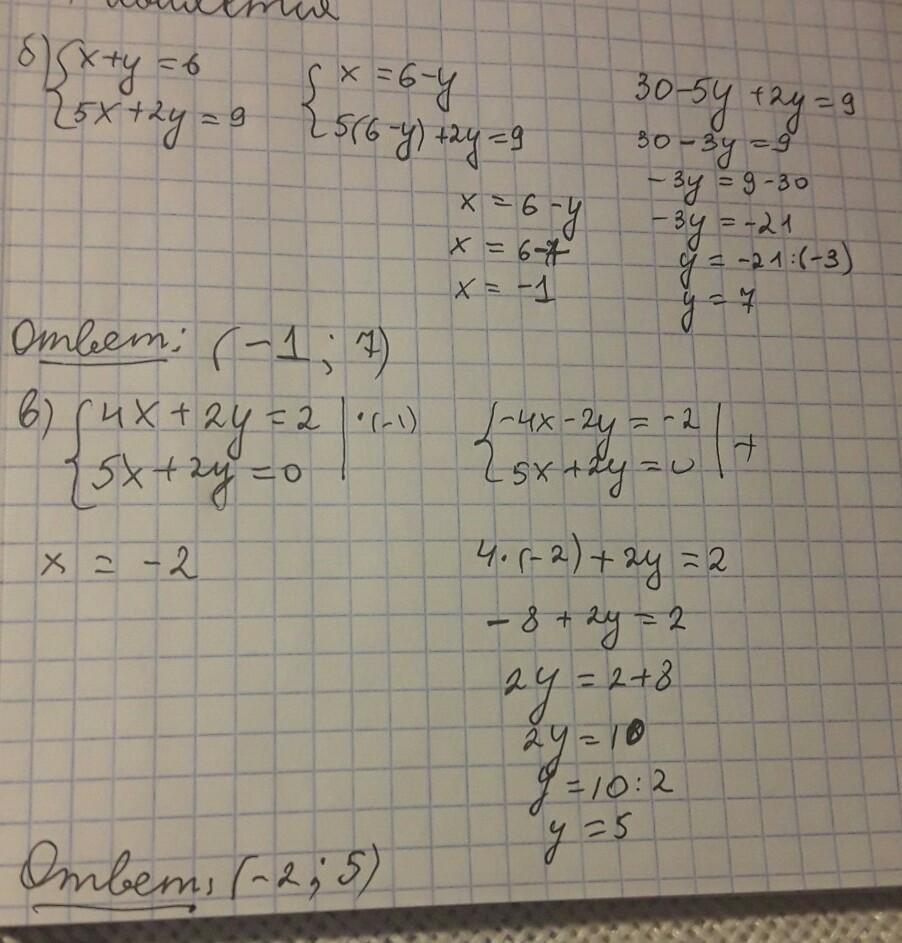 б) { x+y=6
5x+2y=9
{ x=6-y
5(6-y)+2y=9
30-5y+2y=9
30-3y=9
-3y=9-30
-3y=-21
y=-21:(-3)
y=7
x=6-y
x=6-7
x=-1
Ответ: (-1; 7)
в) { 4x+2y=2 | ·(-1)
5x+2y=0
{ -4x-2y=-2 | +
5x+2y=0
x=-2
4·(-2)+2y=2
-8+2y=2
2y=2+8
2y=10
y=10:2
y=5
Ответ: (-2; 5)